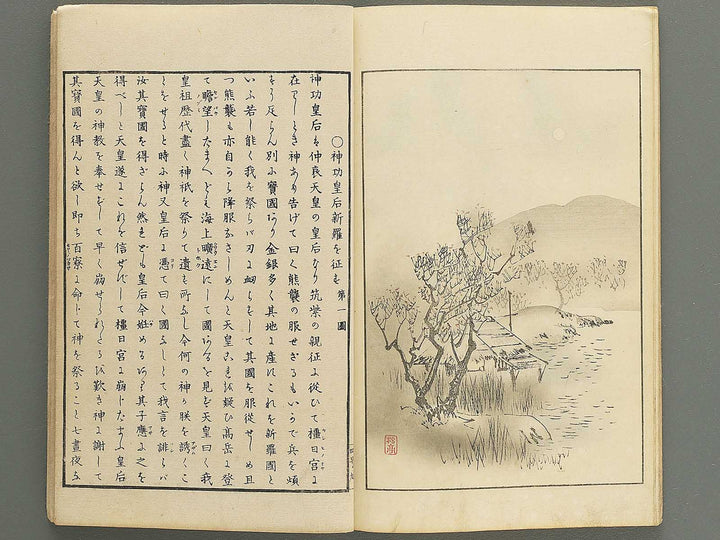 ○神功皇后新羅を征す 第一圖
神功皇后ハ仲哀天皇の皇后なり筑紫の親征に從ひて橿日宮に
在せしとき神あり告げて曰く熊襲の服せざるもいかで兵を煩
すに足らん別に寶國あり金銀多く其地に産すこれを新羅國と
いふ若し能く我を祭らバ刃に衂らずして其國を服從せしめ且
つ熊襲も亦自から降服なさしめんと天皇これを疑ひ高岳に登
て瞻望したまへども海上曠遠にして國あるを見ず天皇曰く我
皇祖歴代盡く神祇を祭りて遺す所なし今何の神か朕を誘くこ
とをせると時に神又皇后に憑て曰く國なしとて我言を誹らバ
汝其寶國を得ざらん然れども皇后今姙めるあり其子應に之を
得べしと天皇遂にこれを信ぜずして橿日宮に崩じたまふ皇后
天皇の神教を奉せずして早く崩せられたるを歎き神に謝して
其寶國を得んと欲し即ち百寮に命じて神を祭ること七晝夜な